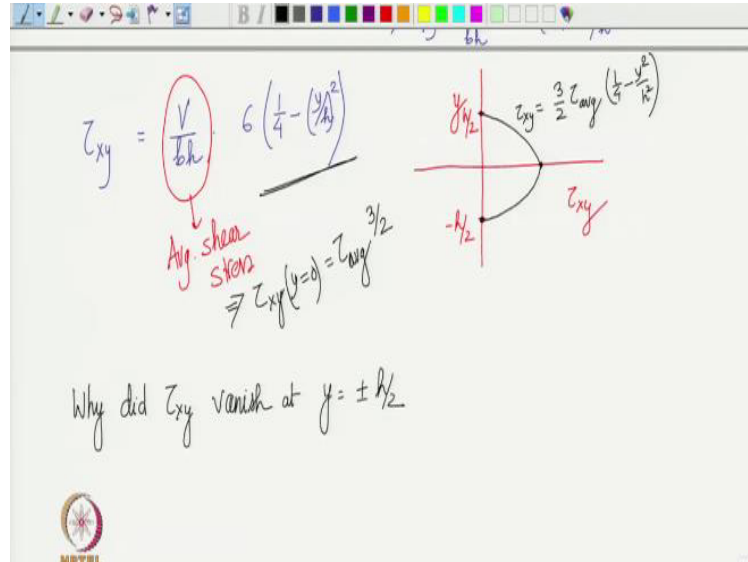 bh
τxy = V/bh · 6(1/4 - (y/h)²)
Avg. shear
stress
⇒ τxy(y=0) = τavg 3/2
y
h/2
-h/2
τxy = 3/2 τavg (1/4 - y²/h²)
τxy
Why did τxy vanish at y = ± h/2
NPTEL